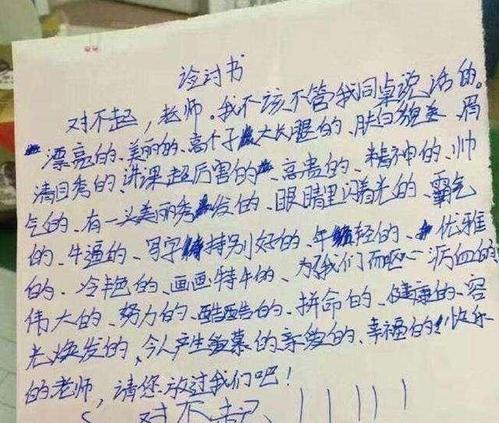 诊讨书
对不起，老师。我不该不管我同桌说话的。
漂亮的、美丽的、高个子大长腿的、肤白貌美、眉
清目秀的讲课超厉害的、高贵的、精神的、帅
气的、有一头美丽秀发的、眼睛里闪着光的、霸气
的、牛逼的、写字特别好的、年轻的、优雅
的、冷艳的、画画特牛的、为我们而呕心沥血的
伟大的、努力的、酷酷的、拼命的、健康的、容
光焕发的、令人产生羡慕的亲爱的、幸福的快乐
的老师，请您放过我们吧！
对不起、